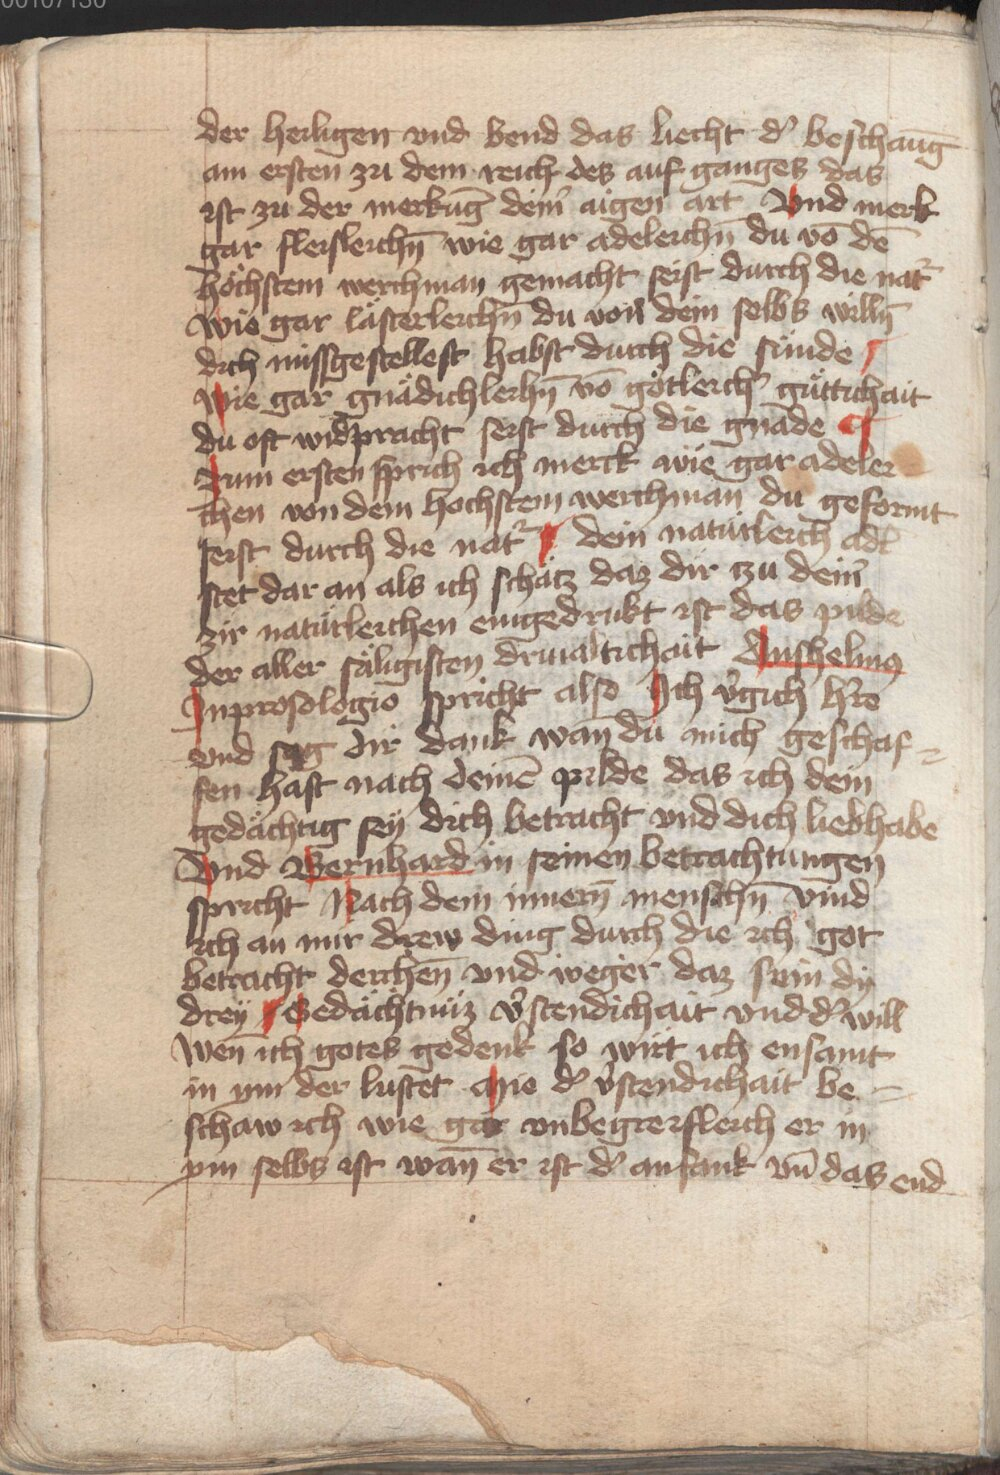 der heiligen vnd bend das liecht d' beschaug̅
am ersten zu dem reich des auf ganges das
ist zu der merkūg dein' aigen art Vnd merk
gar fleisleichn̄ wie gar adeleichn̄ du vō dē
höchstem werchman gemacht seist durch die nat'
wie gar lästerleichn̄ du von dein selbs willn̄
dich missgestellest habst durch die sünde ¶
wie gar gnädichleihn̄ vō götleich' güttichait
du oft wid'pracht seist durch die gnade ¶
Zum ersten sprich ich merck wie gar adelei
chen von dem hochstem werchman du geformt
seist durch die nat' ¶ dein natürleich adl
stet dar an als ich schätz daz dir zu dein'
zir natürleichen eingedrukt ist das pilde
der aller säligisten driualtichait Anshelm9
Inprosologio spricht also Ich v'gich h're
vnd sag dir dank wan̄ du mich geschaf=
fen hast nach deinē pilde das ich dein
gedächtig sey dich betracht vnd dich liebhabe
Vnd Bernhard in seinen betrachtungen
spricht Nach dem innern̄ menschn̄ vind
ich an mir drew ding durch die ich got
betracht derchen̄ vnd weger daz sein dy
drey ¶ Gedächtnüz v'stendichait vnd d' will
Wen̄ ich gotes gedenk so wirt ich ensamt
in ym der lustet Mie d' v'stendichait be=
schaw ich wie gar vnbegreifleich er in
ym selbs ist wan̄ er ist d' anfank vn̄ das end